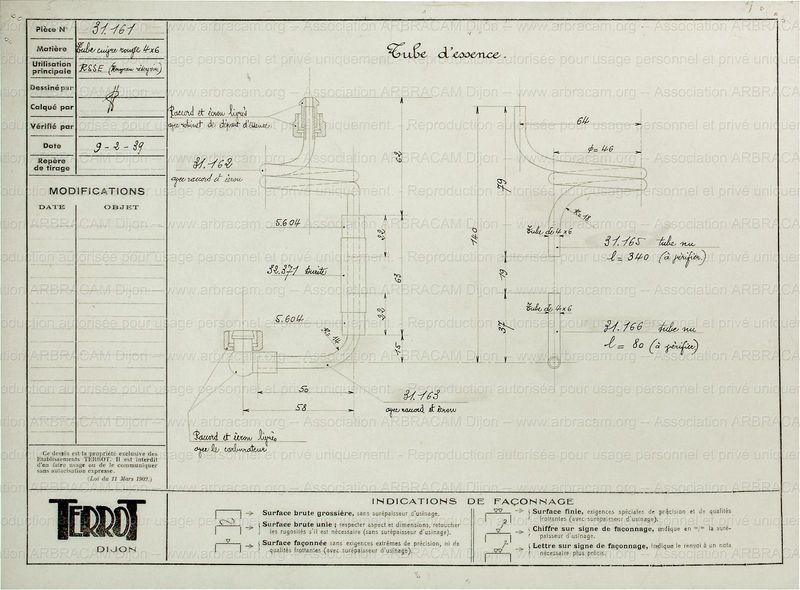 Pièce N° 31.161
Matière Tube cuivre rouge 4x6
Utilisation principale RSSE
Dessiné par
Calqué par
Vérifié par
Date 9-2-39
Repère de tirage
MODIFICATIONS
DATE OBJET
Ce dessin est la propriété exclusive des
Etablissements TERROT. Il est interdit
d'en faire usage ou de le communiquer
sans autorisation expresse.
(Loi du 11 Mars 1902.)
TERROT
DIJON
Tube d'essence.
Raccord et écrou livrés
avec robinet de départ d'essence.
31.162
avec raccord et écrou
5.604
32.371 durite
5.604
R=14
50
58
31.163
avec raccord et écrou
Raccord et écrou livrés
avec le carburateur
62
32
63
32
15
64
ϕ=46
79
140
19
37
R=18
Tube de 4x6
31.165 tube nu
l= 340 (à vérifier)
Tube de 4x6
31.166 tube nu
l= 80 (à vérifier)
INDICATIONS DE FAÇONNAGE
Surface brute grossière, sans surépaisseur d'usinage.
Surface brute unie; respecter aspect et dimensions, retoucher
les rugosités s'il est nécessaire (sans surépaisseur d'usinage).
Surface façonnée sans exigences extrêmes de précision, ni de
qualités frottantes (avec surépaisseur d'usinage).
Surface finie, exigences spéciales de précision et de qualités
frottantes (avec surépaisseur d'usinage).
Chiffre sur signe de façonnage, indique en m/m la suré-
paisseur d'usinage.
Lettre sur signe de façonnage, indique le renvoi à un nota
nécessaire plus précis.
Association ARBRACAM Dijon - www.arbracam.org - Reproduction autorisée pour usage personnel et privé uniquement.